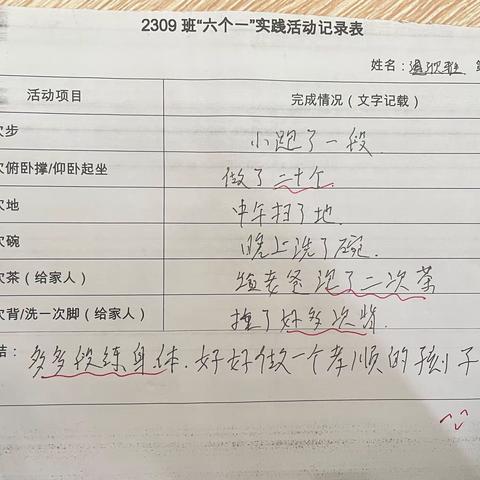 2309 班“六个一”实践活动记录表
姓名：温欣雅
活动项目 完成情况（文字记载）
次步 小跑了一段.
次俯卧撑/仰卧起坐 做了二十个.
次地 中午扫了地.
次碗 晚上洗了碗.
次茶（给家人） 给老爸泡了二次茶
次背/洗一次脚（给家人） 捶了好多次背.
结： 多多锻练身体.好好做一个孝顺的孩子